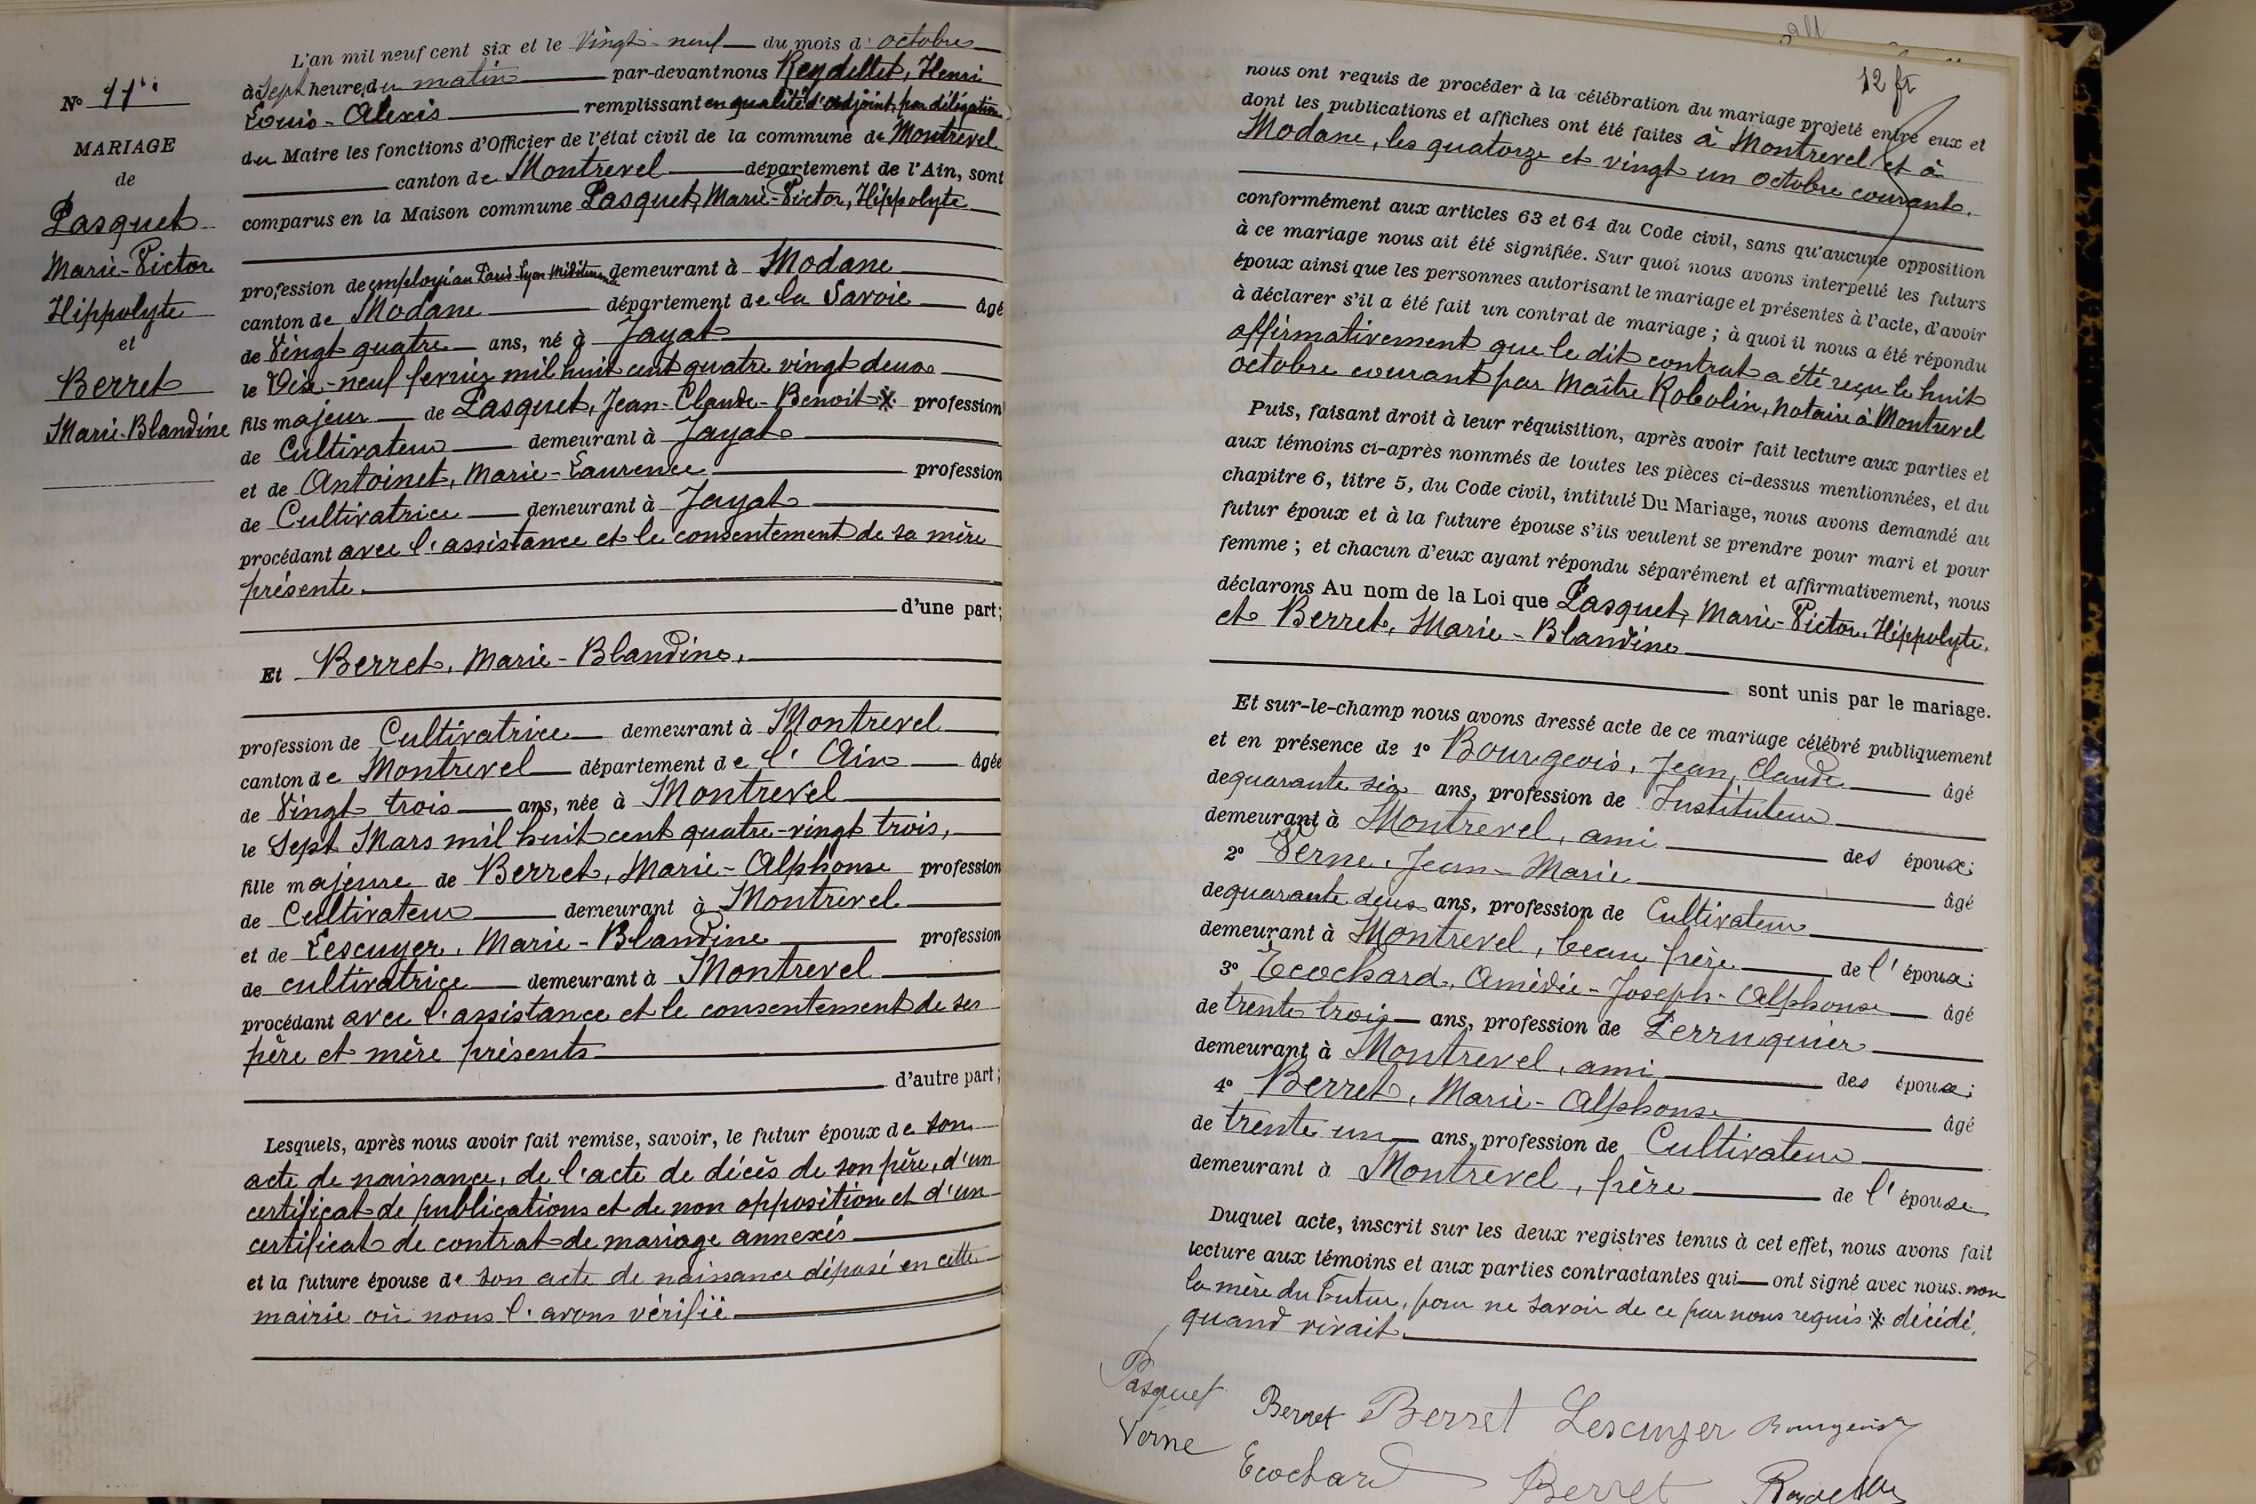 L'an mil neuf cent six et le Vingt-neuf du mois d'octobre
à Sept heures du matin par-devant nous Reydellet, Henri
Louis-Alexis remplissant en qualité d'adjoint, par délégation
du Maire les fonctions d'Officier de l'état civil de la commune de Montrevel
canton de Montrevel département de l'Ain, sont
comparus en la Maison commune Pasquet, Marie-Victor, Hippolyte
N° 11
MARIAGE
de
Pasquet
Marie-Victor
Hippolyte
et
Berret
Marie-Blandine
profession de employé au Paris-Lyon Méditerranée demeurant à Modane
canton de Modane département de la Savoie âgé
de Vingt quatre ans, né à Jayat
le Dix-neuf fevrier mil huit cent quatre vingt deux
fils majeur de Pasquet, Jean-Claude-Benoit profession
de Cultivateur demeurant à Jayat
et de Antoinet, Marie-Laurence profession
de Cultivatrice demeurant à Jayat
procédant avec l'assistance et le consentement de sa mère
présente.
d'une part;
Et Berret, Marie-Blandine,
profession de Cultivatrice demeurant à Montrevel
canton de Montrevel département de l'Ain âgée
de Vingt trois ans, née à Montrevel
le Sept Mars mil huit cent quatre-vingt trois,
fille majeure de Berret, Marie-Alphonse profession
de Cultivateur demeurant à Montrevel
et de Lescuyer, Marie-Blandine profession
de cultivatrice demeurant à Montrevel
procédant avec l'assistance et le consentement de ses
père et mère présents
d'autre part;
Lesquels, après nous avoir fait remise, savoir, le futur époux de son
acte de naissance, de l'acte de décès de son père, d'un
certificat de publications et de non opposition et d'un
certificat de contrat de mariage annexés
et la future épouse de son acte de naissance déposé en cette
mairie où nous l'avons vérifié
12 fr
nous ont requis de procéder à la célébration du mariage projeté entre eux et
dont les publications et affiches ont été faites à Montrevel et à
Modane, les quatorze et vingt un octobre courant.
conformément aux articles 63 et 64 du Code civil, sans qu'aucune opposition
à ce mariage nous ait été signifiée. Sur quoi nous avons interpellé les futurs
époux ainsi que les personnes autorisant le mariage et présentes à l'acte, d'avoir
à déclarer s'il a été fait un contrat de mariage; à quoi il nous a été répondu
affirmativement que le dit contrat a été reçu le huit
octobre courant par Maître Robolin, notaire à Montrevel
Puis, faisant droit à leur réquisition, après avoir fait lecture aux parties et
aux témoins ci-après nommés de toutes les pièces ci-dessus mentionnées, et du
chapitre 6, titre 5, du Code civil, intitulé Du Mariage, nous avons demandé au
futur époux et à la future épouse s'ils veulent se prendre pour mari et pour
femme; et chacun d'eux ayant répondu séparément et affirmativement, nous
déclarons Au nom de la Loi que Pasquet, Marie-Victor, Hippolyte,
et Berret, Marie-Blandine
sont unis par le mariage.
Et sur-le-champ nous avons dressé acte de ce mariage célébré publiquement
et en présence de 1° Bourgeois, Jean, Claude âgé
de quarante six ans, profession de Instituteur
demeurant à Montrevel, ami des époux;
2° Verne, Jean-Marie âgé
de quarante deux ans, profession de Cultivateur
demeurant à Montrevel, beau frère de l'époux;
3° Ecochard, Amédée-Joseph-Alphonse âgé
de trente trois ans, profession de Perruquier
demeurant à Montrevel, ami des époux;
4° Berret, Marie-Alphonse âgé
de trente un ans, profession de Cultivateur
demeurant à Montrevel, frère de l'épouse
Duquel acte, inscrit sur les deux registres tenus à cet effet, nous avons fait
lecture aux témoins et aux parties contractantes qui ont signé avec nous. non
la mère du Futur, pour ne savoir de ce par nous requis décédé,
quand vivait.
Pasquet Berret Berret Lescuyer Bourgeois
Verne Ecochard Berret Reydellet